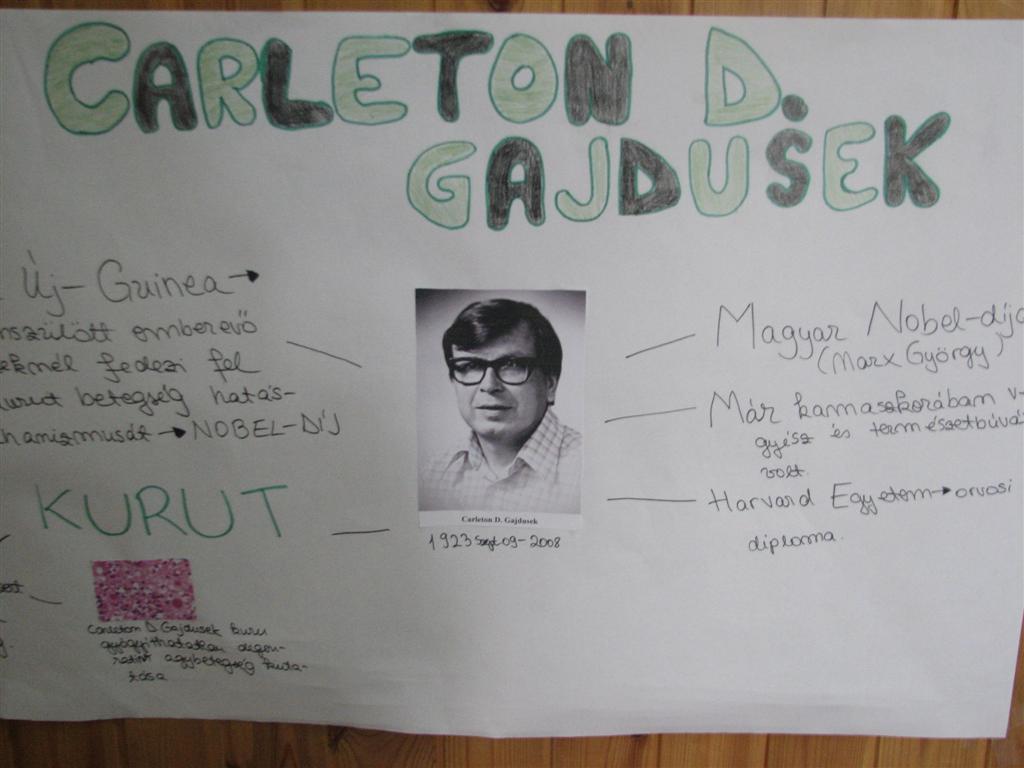 CARLETON D.
GAJDUSEK
Új-Guinea→
emberevő
fedezi fel
betegség hatás-
→NOBEL-DÍJ
KURUT
Carleton D Gajdusek kuru
gyógyíthatatlan degen-
agybetegség kuta-
tása
Carleton D. Gajdusek
1923 Szept 09-2008
Magyar Nobel-díja
(Marx György)
Már kamaszkorában v-
gyész és természetbúvá
volt.
Harvard Egyetem→orvosi
diploma.